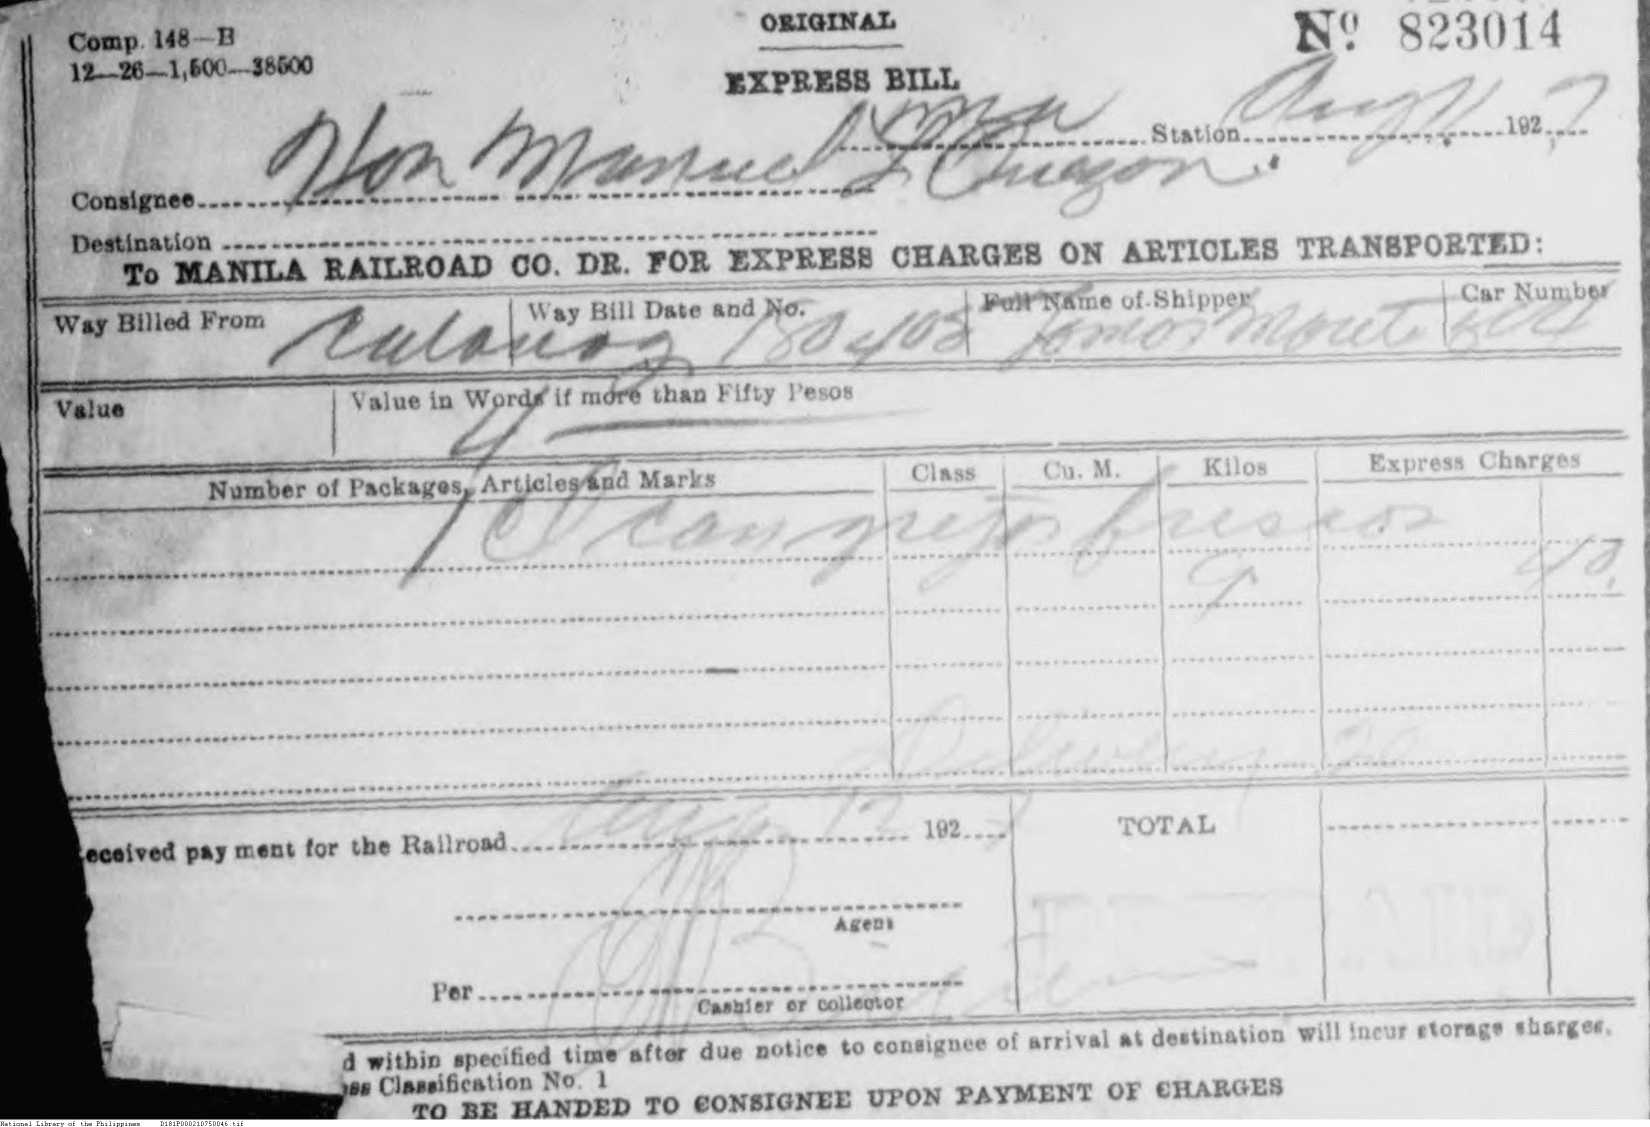 ORIGINAL
Comp. 148—B
12—26—1,500—38500
Nº 823014
EXPRESS BILL
Station Aug 192 7
Consignee Hon Manuel L Quezon.
Destination
To MANILA RAILROAD CO. DR. FOR EXPRESS CHARGES ON ARTICLES TRANSPORTED:
Way Billed From Way Bill Date and No. Full Name of Shipper Car Number
Calauag
Value Value in Words if more than Fifty Pesos
Number of Packages, Articles and Marks Class Cu. M. Kilos Express Charges
1 cangrejos frescos
9 40
Delivery 20
eceived payment for the Railroad Aug 12 192 7
TOTAL
Agent
Per
Cashier or collector
d within specified time after due notice to consignee of arrival at destination will incur storage charges.
ess Classification No. 1
TO BE HANDED TO CONSIGNEE UPON PAYMENT OF CHARGES
National Library of the Philippines D181P000210750046.tif